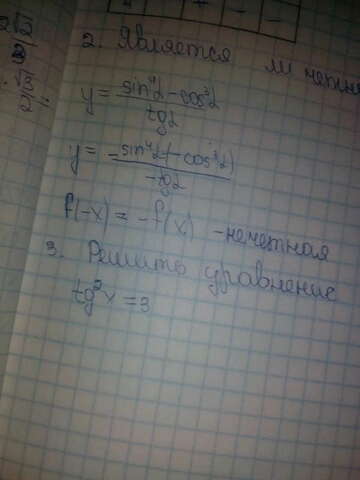 2. Является ли четн
y = sin⁴2 - cos³2 / tg2
y = -sin⁴2(-cos³2) / -tg2
f(-x) = -f(x) - нечетная
3. Решить уравнение
tg²x = 3